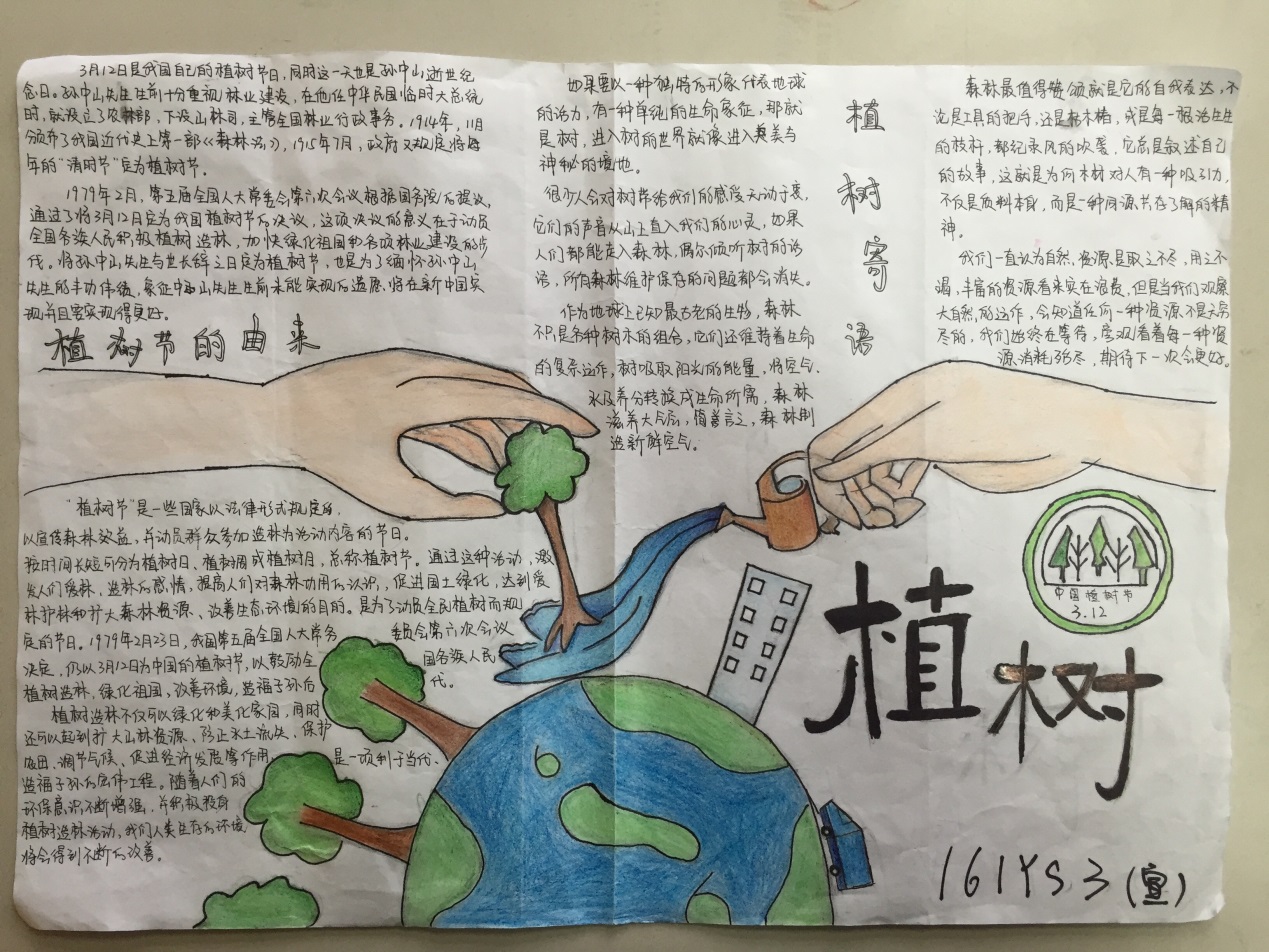 3月12日是我国自己的植树节日，同时这一天也是孙中山逝世纪
念日。孙中山先生生前十分重视林业建设，在他任中华民国临时大总统
时，就设立了农林部，下设山林司，主管全国林业行政事务。1914年，11月
颁布了我国近代史上第一部《森林法》，1915年7月，政府又规定将每
年的“清明节”定为植树节。
1979年2月，第五届全国人大常委会第六次会议根据国务院的提议，
通过了将3月12日定为我国植树节的决议，这项决议的意义在于动员
全国各族人民积极植树造林，加快绿化祖国和各项林业建设的步
伐。将孙中山先生与世长辞之日定为植树节，也是为了缅怀孙中山
先生的丰功伟绩，象征中山先生生前未能实现的遗愿，将在新中国实
现并且要实现得更好。
植树节的由来
“植树节”是一些国家以法律形式规定的，
以宣传森林效益，并动员群众参加造林为活动内容的节日。
按时间长短可分为植树日、植树周或植树月，总称植树节。通过这种活动，激
发人们爱林、造林的感情，提高人们对森林功用的认识，促进国土绿化，达到爱
林护林和扩大森林资源、改善生态环境的目的。是为了动员全民植树而规
定的节日。1979年2月23日，我国第五届全国人大常务委员会第六次会议
决定，仍以3月12日为中国的植树节，以鼓励全国各族人民
植树造林，绿化祖国，改善环境，造福子孙后代。
植树造林不仅可以绿化和美化家园，同时
还可以起到扩大山林资源、防止水土流失、保护
农田、调节气候、促进经济发展等作用，是一项利于当代、
造福子孙的宏伟工程。随着人们的
环保意识不断增强，并积极投身
植树造林活动，我们人类生存的环境
将会得到不断的改善。
如果要以一种独特的形象代表地球
的活力，有一种单纯的生命象征，那就
是树，进入树的世界就像进入奥美与
神秘的境地。
很少人会对树带给我们的感受无动于衷，
它们的声音从山上直入我们的心灵，如果
人们都能走入森林，偶尔倾听树的话
语，所有森林维护保存的问题都会消失。
作为地球上已知最古老的生物，森林
不只是各种树木的组合，它们还维持着生命
的复杂运作，树吸取阳光的能量，将空气、
水及养分转换成生命所需，森林
滋养大气层，简单言之，森林制
造新鲜空气。
植树寄语
森林最值得赞颂就是它的自我表达，不
论是工具的把手，还是枯木桩，或是每一根活生生
的枝杆，都纪录风的吹袭，它总是叙述自己
的故事，这就是为何木材对人有一种吸引力，
不仅是质料本身，而是一种同源书在了解的精
神。
我们一直认为自然资源是取之不尽，用之不
竭，丰富的资源看来实在浪费，但是当我们观察
大自然的运作，会知道任何一种资源不是无穷
尽的，我们始终在等待，旁观看着每一种资
源消耗殆尽，期待下一次会更好。
中国植树节
3.12
植树
161YS3(宣)